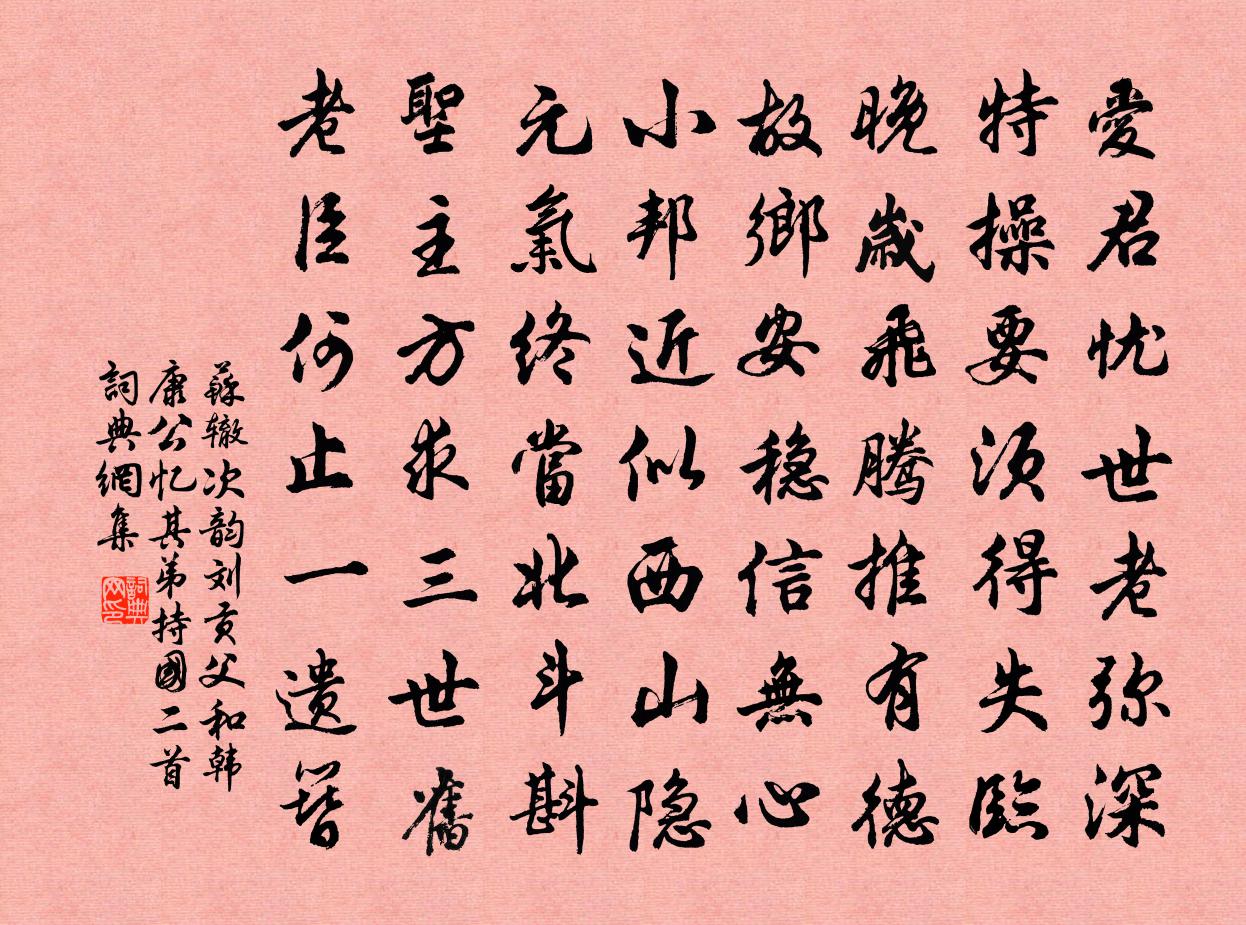 愛君忧世老弥深
特操要须得失臨
晚歲飛腾推有德
故鄉安稳信無心
小邦近似西山隐
元氣终當北斗斟
聖主方求三世舊
老臣何止一遗簪
蘇辙次韵刘贡父和韩
康公忆其弟持國二首
詞典網集
詞典
网印